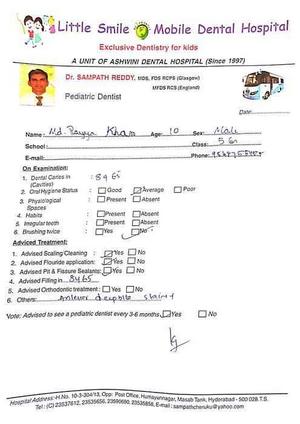 Little Smile Mobile Dental Hospital
Exclusive Dentistry for kids
A UNIT OF ASHWINI DENTAL HOSPITAL (Since 1997)
Dr. SAMPATH REDDY, MDS, FDS RCPS (Glasgow)
MFDS RCS (England)
Pediatric Dentist
Name: Md. Khan Age: 10 Sex: Male
School: Class: 5
E-mail: Phone:
On Examination:
1. Dental Caries in : 8465
(Cavities)
2. Oral Hygiene Status : Good Average Poor
3. Physiological : Present Absent
Spaces
4. Habits : Present Absent
5. Irregular teeth : Present Absent
6. Brushing twice : Yes No
Adviced Treatment:
1. Advised Scaling/Cleaning : Yes No
2. Advised Flouride application: Yes No
3. Advised Pit & Fissure Sealants: Yes No
4. Advised Filling in 8465
5. Advised Orthodontic treatment: Yes No
6. Others:
Note: Advised to see a pediatric dentist every 3-6 months Yes No
Hospital Address: H.No. 10-3-304/13, Opp. Post Office, Humayunnagar, Masab Tank, Hyderabad - 500 028 T.S.
Tel: (C) 23537612, 23535656, 23590690, 23535858, E-mail: sampathcheruku@yahoo.com